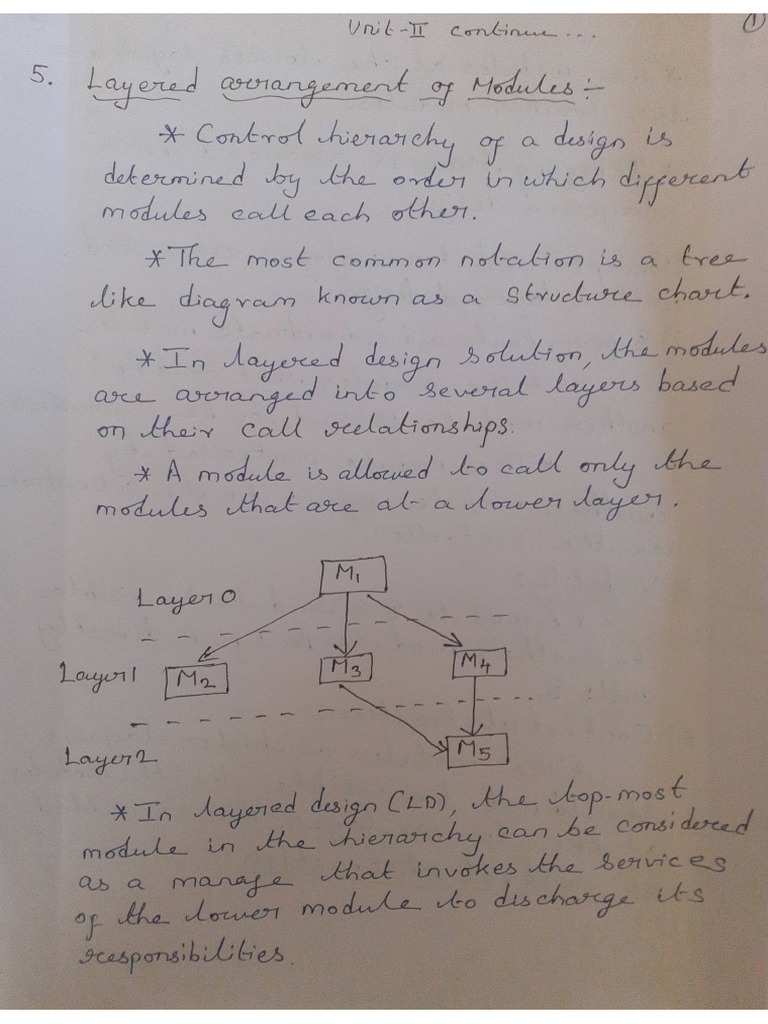 Unit-II continue... 1
5. Layered arrangement of Modules:-
* Control hierarchy of a design is
determined by the order in which different
modules call each other.
* The most common notation is a tree
like diagram known as a structure chart.
* In layered design solution, the modules
are arranged into several layers based
on their call relationships.
* A module is allowed to call only the
modules that are at a lower layer.
M1
Layer 0
Layer 1 M2 M3 M4
Layer 2 M5
* In layered design (LD), the top-most
module in the hierarchy can be considered
as a manage that invokes the services
of the lower module to discharge its
responsibilities.